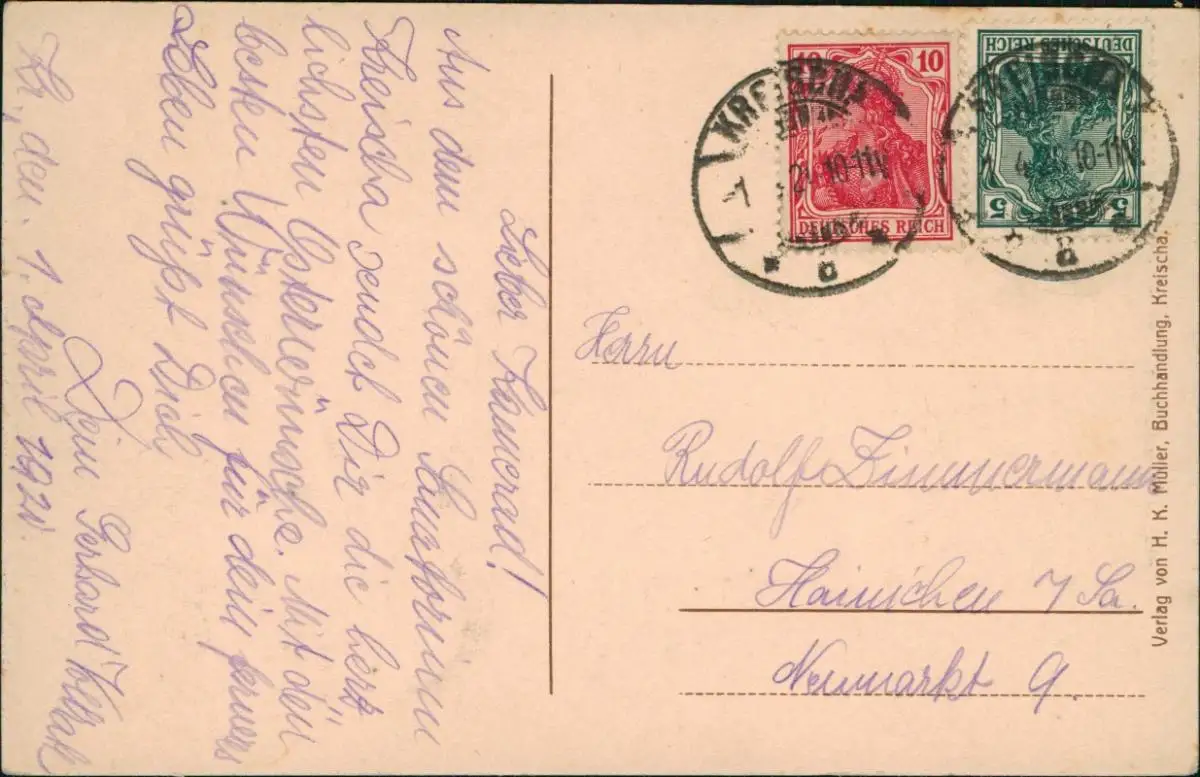 Lieber Kamerad!
Aus dem schönen
Kreischa sendet Dir die herz
lichsten Ostterwünsche. Mit den
besten Wünschen für dein ferneres
Leben grüßt Dich
Dein Gerhard
Kr., den. 1. April 1921.
10 10
DEUTSCHES REICH
DEUTSCHES REICH
5 5
KREISCHA
21.10-11V.
KREISCHA
10-11V.
Herrn
Rudolf Zimmermann
Hainichen i/Sa.
Neumarkt 9.
Verlag von H. K. Müller, Buchhandlung, Kreischa.